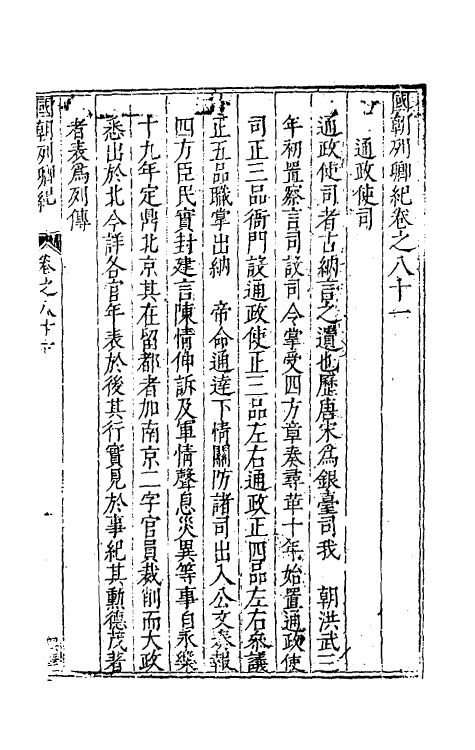 國朝列卿紀卷之八十一
通政使司
通政使司者古納言之遺也歷唐宋爲銀臺司我　朝洪武三
年初置察言司設司令掌受四方章奏尋革十年始置通政使
司正三品衙門設通政使正三品左右通政正四品左右叅議
正五品職掌出納　帝命通達下情關防諸司出入公文奏報
四方臣民實封建言陳情伸訴及軍情聲息災異等事自永樂
十九年定鼎北京其在留都者加南京二字官員裁削而大政
悉出於北今詳各官年表於後其行實見於事紀其勳德茂著
者表爲列傳
國朝列卿紀　卷之八十一